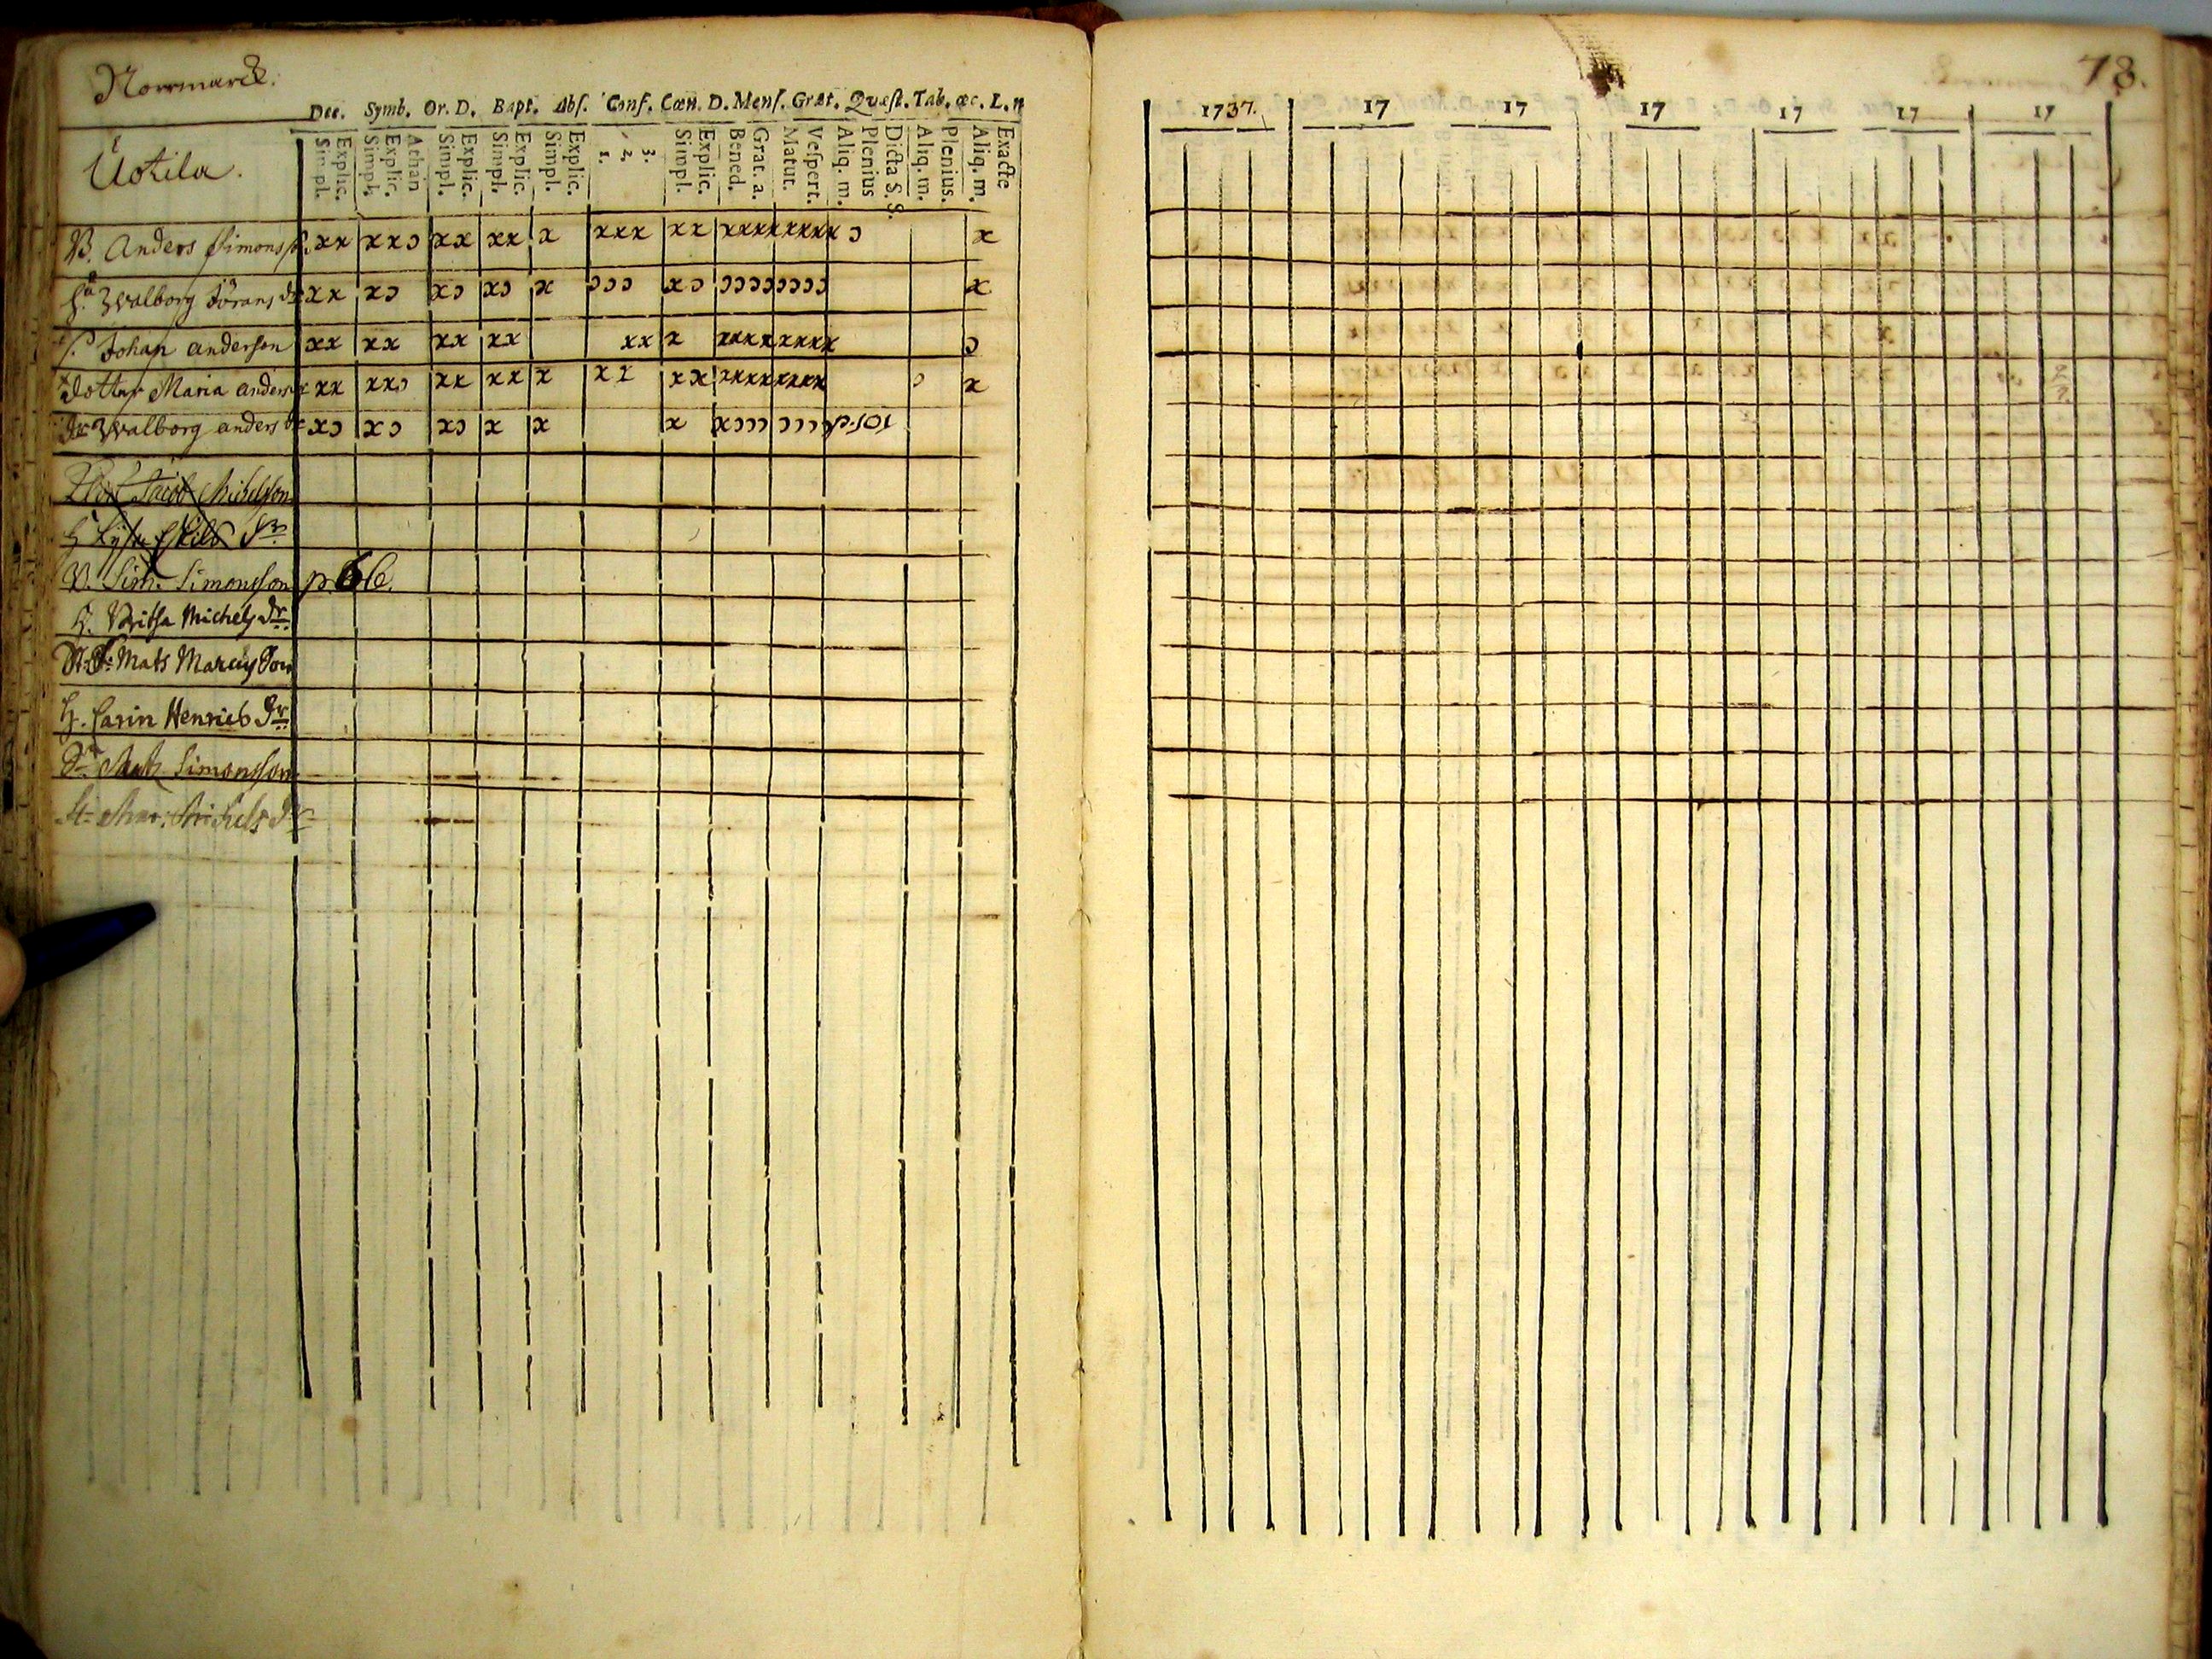 Norrmarck.
78.
Dec. Symb. Or. D. Bapt. Abſ. Conf. Cœn. D. Menſ. Grat. Quæſt. Tab. œc. L. n
1737. 17 17 17 17 17 17
Uotila.
Simpl. Explic. Simpl. Explic. Athan Simpl. Explic. Simpl. Explic. Simpl. Explic. 1. 2, 3. Simpl. Explic. Bened. Grat. a. Matut. Veſpert. Aliq. m. Plenius Dicta S. S. Aliq. m. Plenius. Aliq. m. Exacte
B. Anders Simonss. xx xxɔ xx xx x xxx xx xxxxxxxx ɔ x
h. Walborg Jörans dr xx xɔ xɔ xɔ x ɔɔɔ xɔ ɔɔɔɔɔɔɔɔ x
S. Johan anderson xx xx xx xx xx x xxxxxxxx ɔ
dotter Maria anders xx xxɔ xx xx x xx xx xxxxxxxx ɔ x
dr Walborg anders dr xɔ xɔ xɔ x x x xɔɔɔ ɔɔɔɔ
Jacob Michelsson
B. Sim. Simonsson p. 66.
h. Britha Michels Dr.
Mats Marcus Son
h. Carin Henrics Dr.
Simonsson